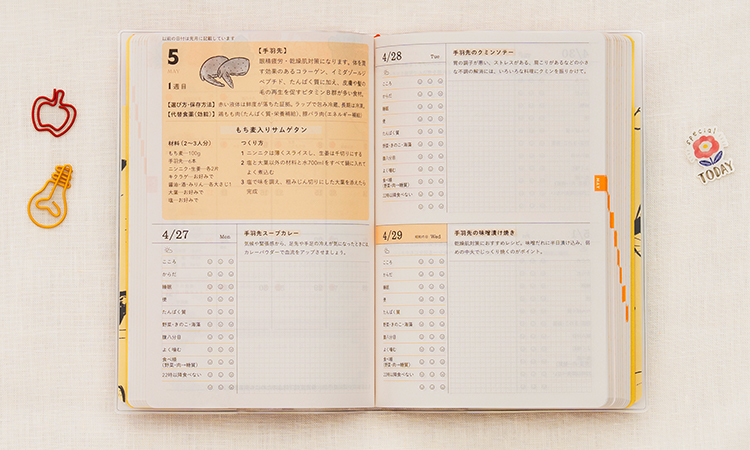 以前の日付は先月に記載しています
5
MAY
1週目
【手羽先】
眼精疲労・乾燥肌対策になります。体を潤
す効果のあるコラーゲン、イミダゾールジ
ペプチド、たんぱく質に加え、皮膚や髪の
毛の再生を促すビタミンB群が多い食材。
【選び方・保存方法】赤い液体は鮮度が落ちた証拠。ラップで包み冷蔵、長期は冷凍。
【代替食薬(効能)】鶏もも肉(たんぱく質・栄養補給)、豚バラ肉(エネルギー補給)
もち麦入りサムゲタン
材料(2〜3人分)
もち麦…100g
手羽先…6本
ニンニク・生姜…各2片
キクラゲ…お好みで
醤油・酒・みりん…各大さじ1
大葉…お好みで
塩…お好みで
つくり方
1 ニンニクは薄くスライスし、生姜は千切りにする
2 塩と大葉以外の材料と水700mlをすべて鍋に入れて
よく煮込む
3 塩で味を調え、粗みじん切りにした大葉を添えたら
完成
4/27 Mon
こころ
からだ
睡眠
便
たんぱく質
野菜・きのこ・海藻
腹八分目
よく噛む
食べ順
(野菜・肉→糖質)
22時以降食べない
手羽先スープカレー
気候や緊張感から、足先や手足の冷えが気になったときには
カレーパウダーで血流をアップさせましょう。
4/28 Tue
こころ
からだ
睡眠
便
たんぱく質
野菜・きのこ・海藻
腹八分目
よく噛む
食べ順
(野菜・肉→糖質)
22時以降食べない
手羽先のクミンソテー
胃の調子が悪い、ストレスがある、肩こりがあるなどの小さ
な不調の解消には、いろいろな料理にクミンを振りかけて。
4/29 昭和の日 Wed
こころ
からだ
睡眠
便
たんぱく質
野菜・きのこ・海藻
腹八分目
よく噛む
食べ順
(野菜・肉→糖質)
22時以降食べない
手羽先の味噌漬け焼き
乾燥肌対策におすすめレシピ。味噌だれに半日漬け込み、弱
めの中火でじっくり焼くのがポイント。
MAY
special
TODAY